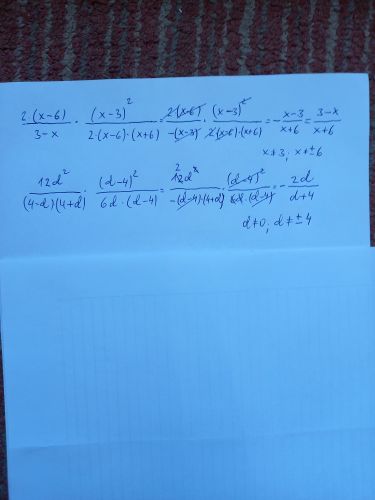 2·(x-6)/3-x · (x-3)²/2·(x-6)·(x+6) = 2·(x-6)/-(x-3) · (x-3)²/2·(x-6)·(x+6) = - x-3/x+6 = 3-x/x+6
x≠3; x≠±6
12d²/(4-d)(4+d) · (d-4)²/6d·(d-4) = 12d²/-(d-4)·(4+d) · (d-4)²/6d·(d-4) = - 2d/d+4
d≠0; d≠±4